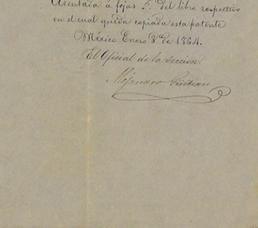 Asentada á fojas 5. del libro respectivo
en el cual queda copiada esta patente
México Enero 8 de 1864.
El Oficial de la Seccion
Alejandro